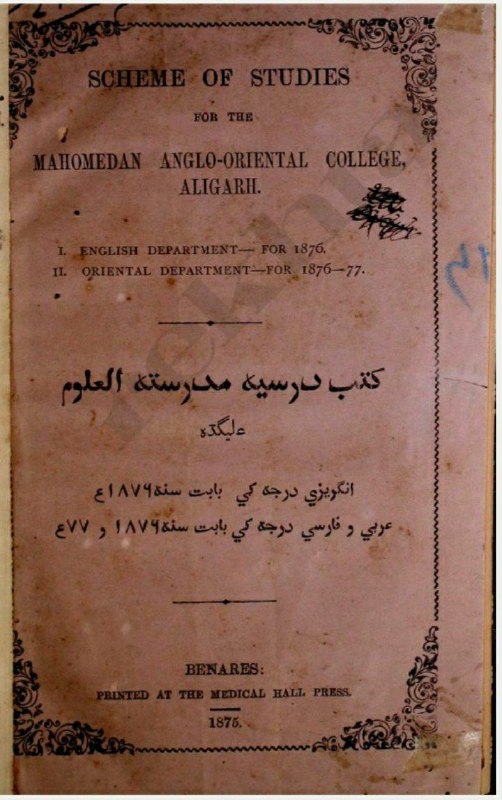 SCHEME OF STUDIES
FOR THE
MAHOMEDAN ANGLO-ORIENTAL COLLEGE,
ALIGARH.
I. ENGLISH DEPARTMENT— FOR 1876.
II. ORIENTAL DEPARTMENT—FOR 1876—77.
کتب درسیه مدرسته العلوم
علیگدہ
انگریزي درجہ کي بابت سنہ ۱۸۷۶ع
عربي و فارسي درجہ کي بابت سنہ ۱۸۷۶ و ۷۷ع
BENARES:
PRINTED AT THE MEDICAL HALL PRESS.
1875.
rekhta